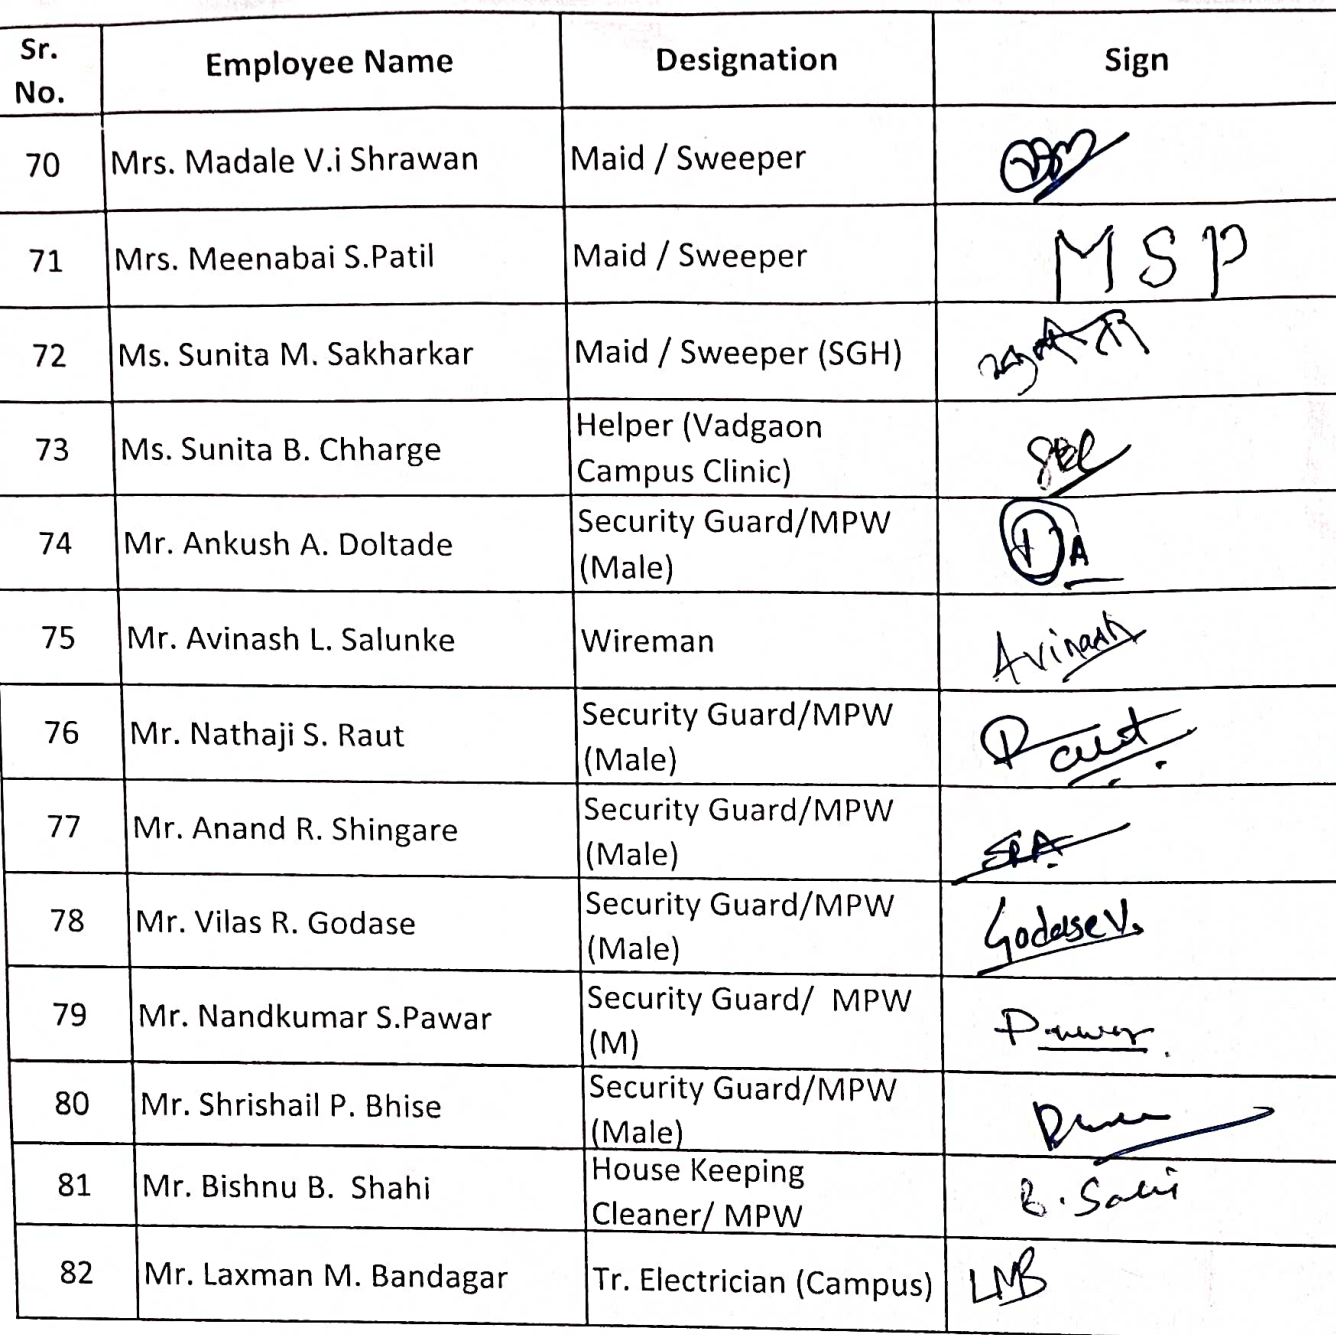 Sr. No. Employee Name Designation Sign
70 Mrs. Madale V.i Shrawan Maid / Sweeper
71 Mrs. Meenabai S.Patil Maid / Sweeper M S P
72 Ms. Sunita M. Sakharkar Maid / Sweeper (SGH)
73 Ms. Sunita B. Chharge Helper (Vadgaon
Campus Clinic)
74 Mr. Ankush A. Doltade Security Guard/MPW
(Male) D A
75 Mr. Avinash L. Salunke Wireman Avinash
76 Mr. Nathaji S. Raut Security Guard/MPW
(Male) Raut
77 Mr. Anand R. Shingare Security Guard/MPW
(Male) SRA
78 Mr. Vilas R. Godase Security Guard/MPW
(Male) Godase V.
79 Mr. Nandkumar S.Pawar Security Guard/ MPW
(M) Pawar
80 Mr. Shrishail P. Bhise Security Guard/MPW
(Male)
81 Mr. Bishnu B. Shahi House Keeping
Cleaner/ MPW B. Sahi
82 Mr. Laxman M. Bandagar Tr. Electrician (Campus) LMB